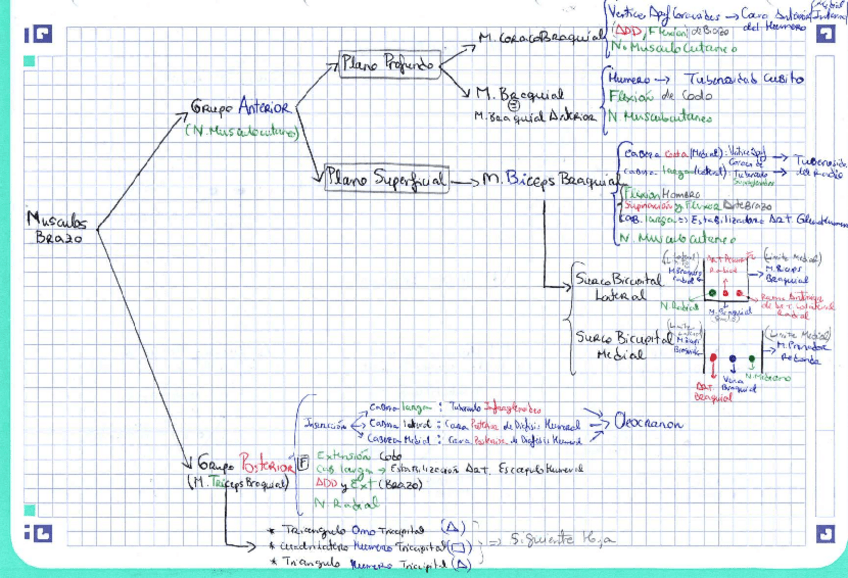 Musculos
Brazo
Grupo Anterior
(N. Musculocutaneo)
Plano Profundo
M. CoracoBraquial
Vertice Apf Coracoides → Cara Anterior Interna
del Humero
(ADD, Flexion) de Brazo
N. Musculo Cutaneo
M. Braquial
=
M. Braquial Anterior
Humero → Tuberosidad Cubito
Flexión de Codo
N Musculocutaneo
Plano Superficial → M. Biceps Braquial
Cabeza Corta (Medial): Vertice Apf
Coracoides
Cabeza larga (lateral): Tuberculo
Supraglenoideo
Tuberosidad
del Radio
Flexion Hombro
Supinación y Flexion AnteBrazo
Cab. larga => Estabilizadora Art GlenoHumeral
N. Musculo Cutaneo
Surco Bicipital
Lateral
(Limite Medial)
M. Biceps
Braquial
N. Radial
Surco Bicipital
Medial
(Limite Medial)
M. Pronador
Redondo
Art
Braquial
Vena
Braquial
N. Mediano
Grupo Posterior
(M. Triceps Braquial)
Inserción
Cabeza larga : Tuberculo Infraglenoideo
Cabeza lateral : Cara Posterior de Diafisis Humeral
Cabeza Medial : Cara Posterior de Diafisis Humeral
Olecranon
F
Extensión Codo
Cab larga → Estabilización Art. Escapulo Humeral
ADD y Ext (Brazo)
N. Radial
* Triangulo Omo Tricipital (△)
* Cuadrilatero Humero Tricipital (□)
* Triangulo Humero Tricipital (△)
=> Siguiente Hoja